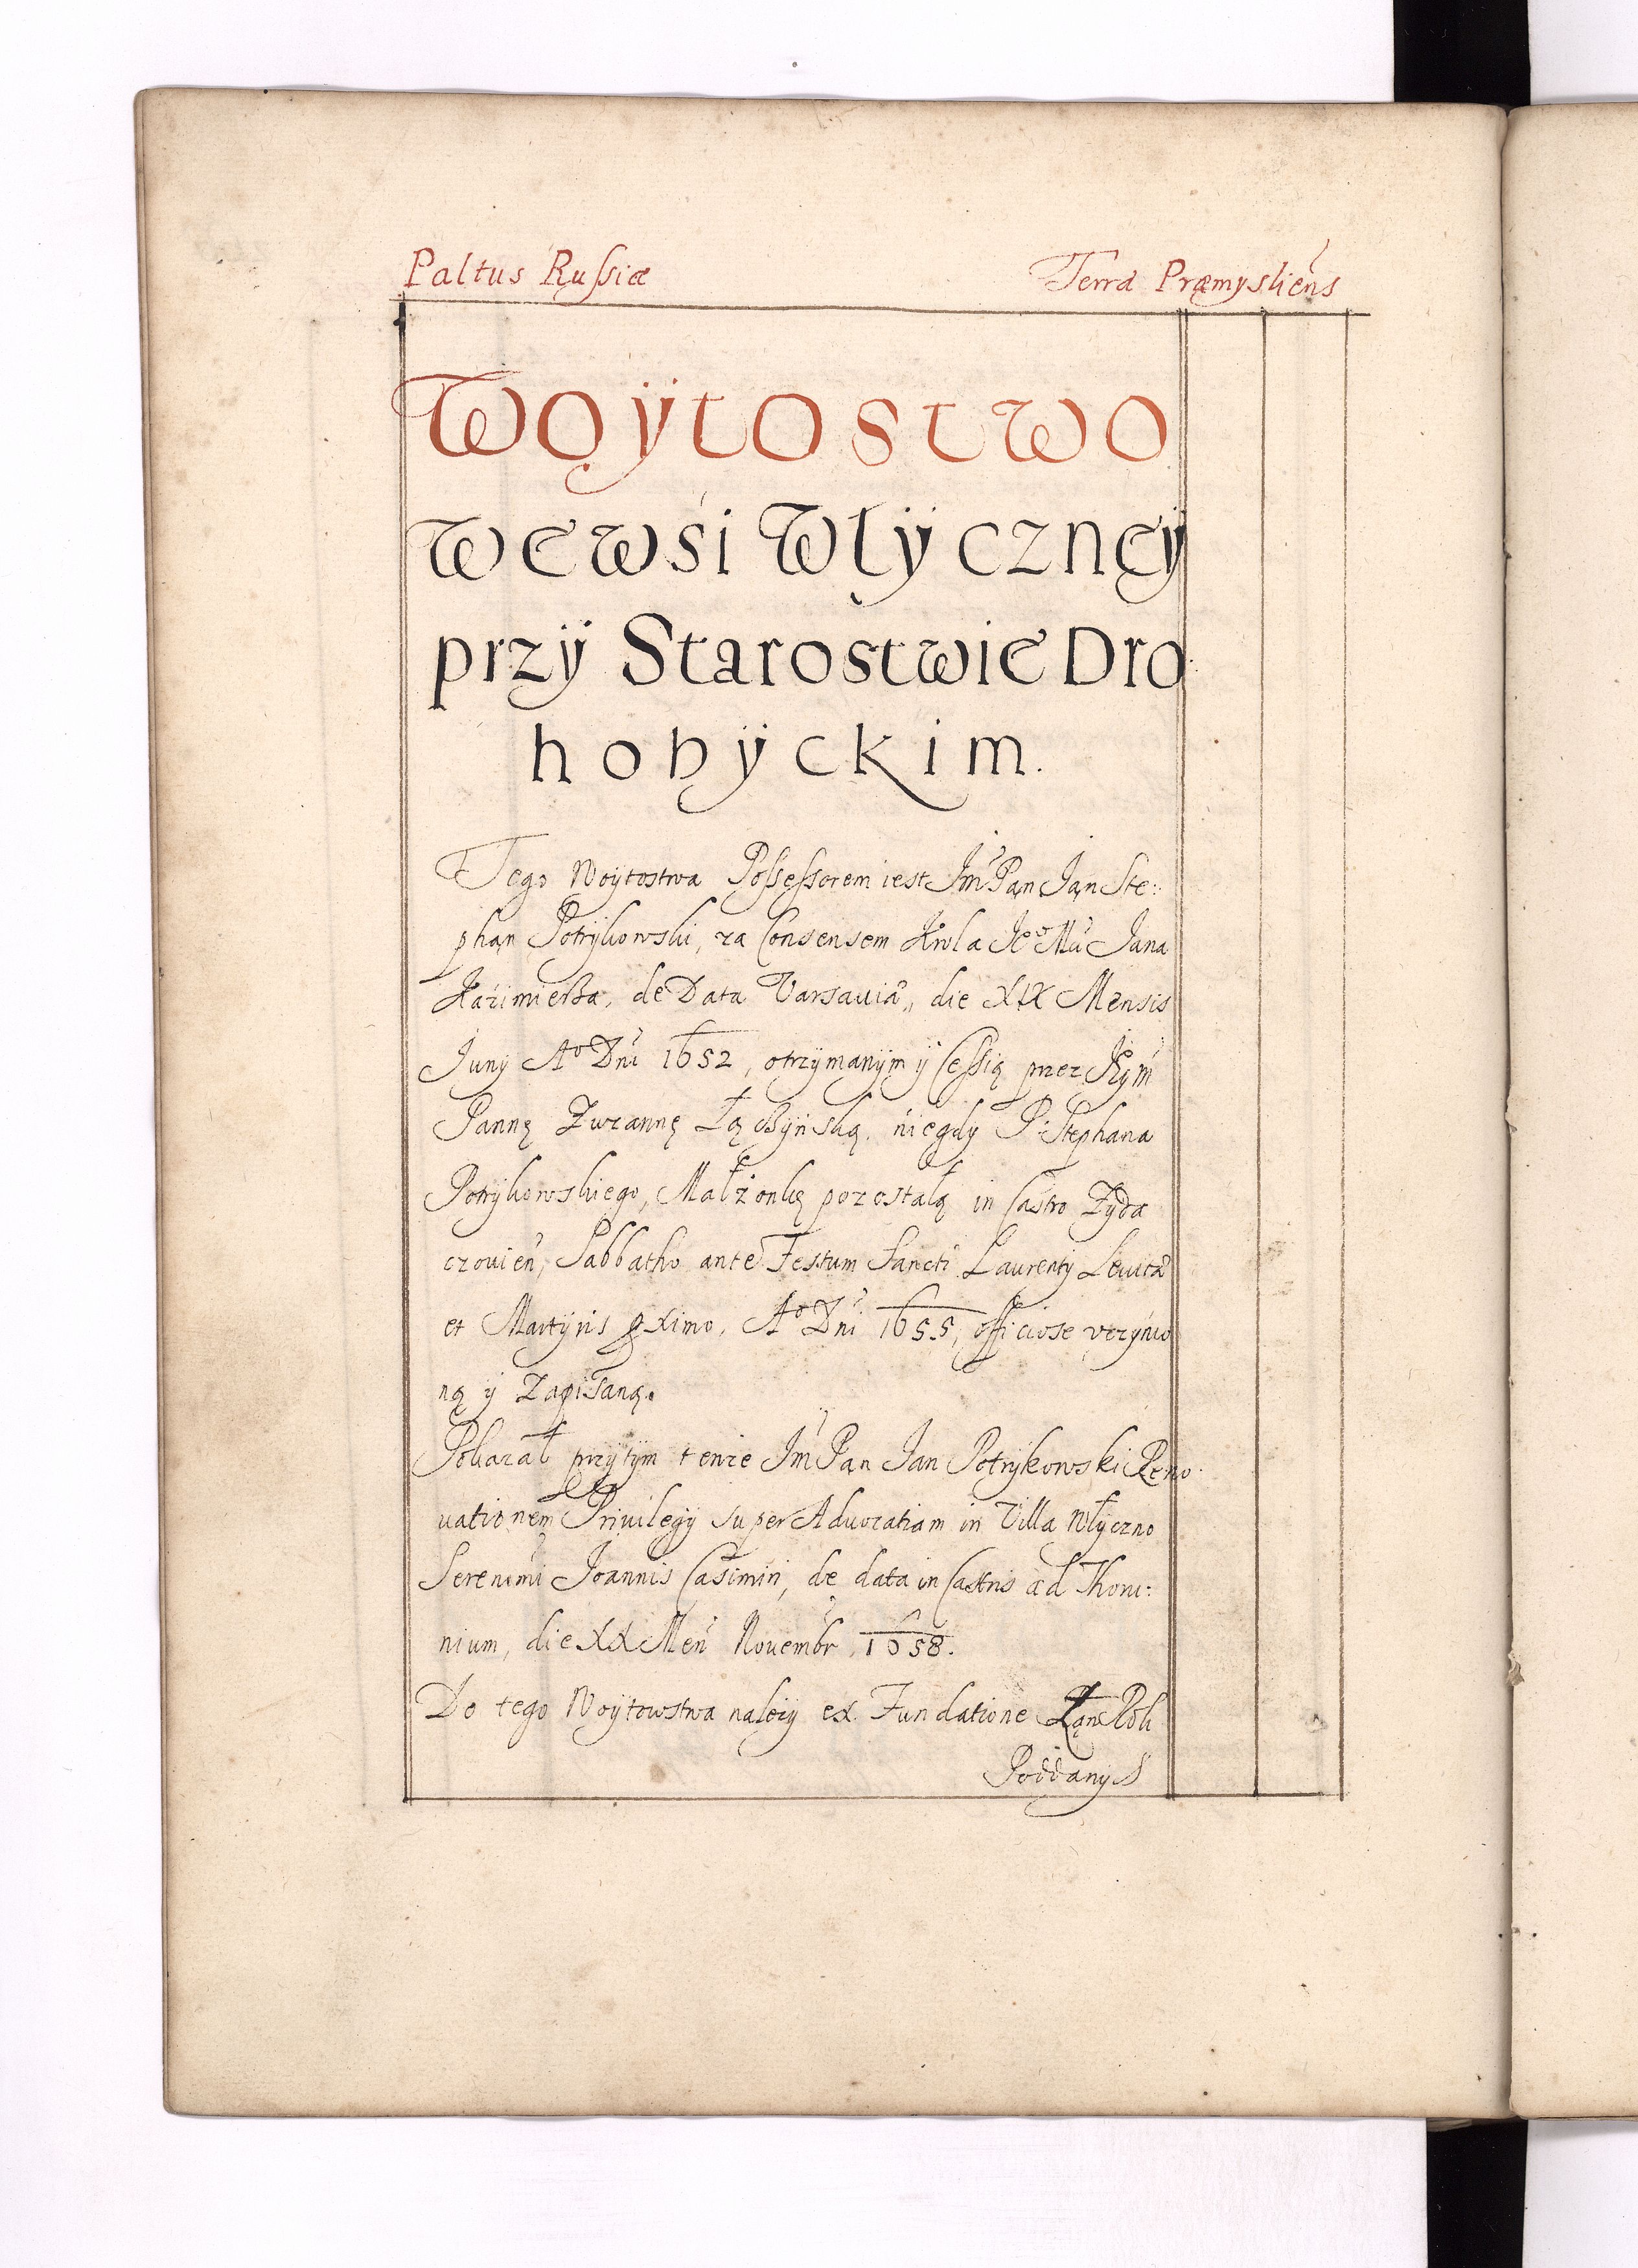 Paltus Russiæ
Terra Præmysliens
Woÿtostwo
wewśi Wlÿczneÿ
przÿ Starostwie Dro
hobÿckim.
Tego Woÿtostwa Possessorem iest Jm̃ Pąn Jąn Ste:
phąn Potrÿkowski, za Consensem Krola Jeo Mci Jana
Kaźimierza, de Data Varsauiæ, die XIX Mensis
Juny Ao Dni 1652, otrzÿmanÿm ÿ Cessią przez
Pannę Zuzannę Łączÿńską, niegdy P. Stephana
Potrÿkowskiego, Małżonkę pozostałą in Castro Zÿda
czouien, Sabbatho ante Festum Sancti Laurentÿ Leuitæ
et Martÿris pximo, Ao Dni 1655, officiose vczÿnio
ną ÿ Zapisaną.
Pokazał przÿtÿm tenze Jm̃ Pąn Jan Potrÿkowski Reno
uationem Priuilegÿ super Aduocatiam in Villa Włÿczno
Serenimi Joannis Casimiri, de data in Castris ad Thoru:
nium, die XX Men Nouembr, 1658.
Do tego Woÿtowstwa należÿ ex Fundatione Łąn Roli
Poddanÿch